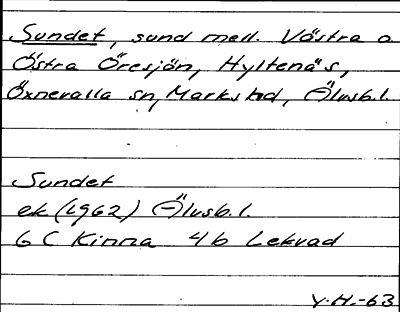 Sundet, sund mell. Västra o
Östra Öresjön, Hyltenäs,
Öxnevalla sn, Marks hd, Älvsb. l.
Sundet
ek (1962) Älvsb. l.
6 C Kinna 4 b Lekvad
Y.H.-63